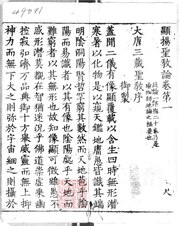 顯揚聖教論卷第一
大唐三藏聖教序
御製
蓋聞二儀有像顯覆載以含生四時無形潛
寒暑以化物是以窺天鑑地庸愚皆識其端
明陰洞陽賢哲罕窮其數然而天地苞乎陰
陽而易識者以其有像也陰陽處乎天地而
難窮者以其無形也故知像顯可徵雖愚不
惑形潛莫覩在智猶迷況乎佛道崇虛乘幽
控寂弘濟萬品典御十方舉威靈而無上抑
神力而無下大之則彌於宇宙細之則攝於